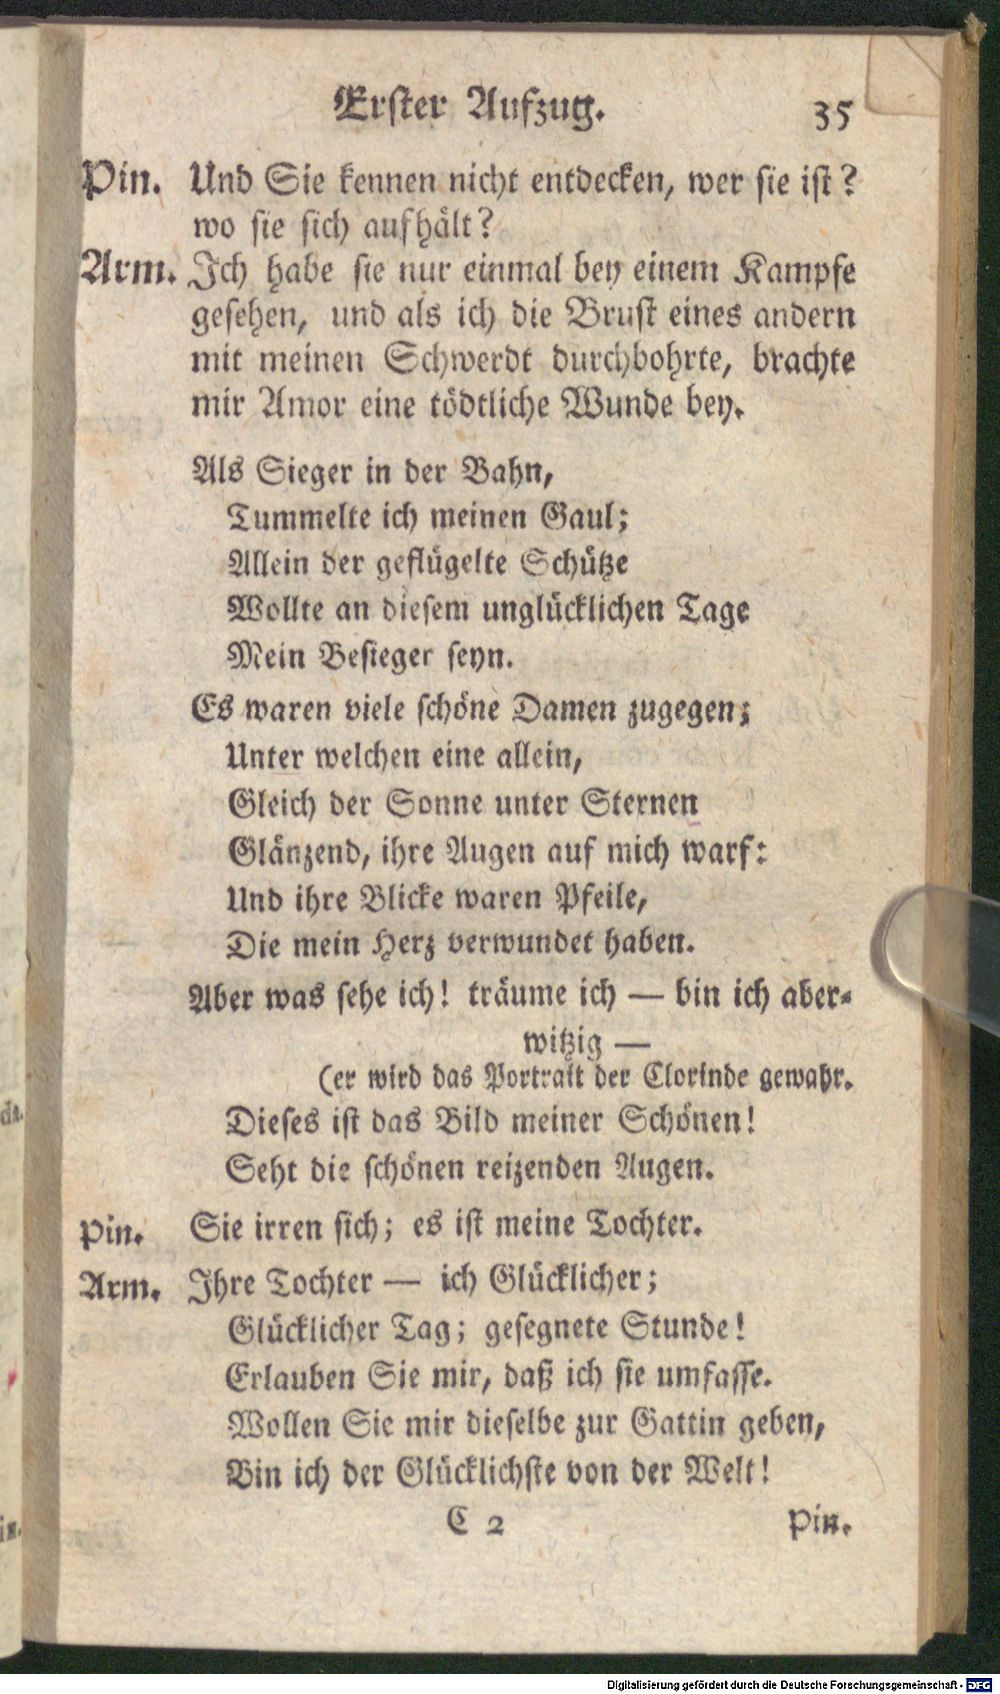 Erster Aufzug. 35
Pin. Und Sie kennen nicht entdecken, wer sie ist?
wo sie sich aufhält?
Arm. Ich habe sie nur einmal bey einem Kampfe
gesehen, und als ich die Brust eines andern
mit meinen Schwerdt durchbohrte, brachte
mir Amor eine tödtliche Wunde bey.
Als Sieger in der Bahn,
Tummelte ich meinen Gaul;
Allein der geflügelte Schütze
Wollte an diesem unglücklichen Tage
Mein Besieger seyn.
Es waren viele schöne Damen zugegen;
Unter welchen eine allein,
Gleich der Sonne unter Sternen
Glänzend, ihre Augen auf mich warf:
Und ihre Blicke waren Pfeile,
Die mein Herz verwundet haben.
Aber was sehe ich! träume ich — bin ich aber-
witzig —
(er wird das Portrait der Clorinde gewahr.
Dieses ist das Bild meiner Schönen!
Seht die schönen reizenden Augen.
Pin. Sie irren sich; es ist meine Tochter.
Arm. Ihre Tochter — ich Glücklicher;
Glücklicher Tag; gesegnete Stunde!
Erlauben Sie mir, daß ich sie umfasse.
Wollen Sie mir dieselbe zur Gattin geben,
Bin ich der Glücklichste von der Welt!
C 2 Pin.
da.
in.
Digitalisierung gefördert durch die Deutsche Forschungsgemeinschaft - DFG